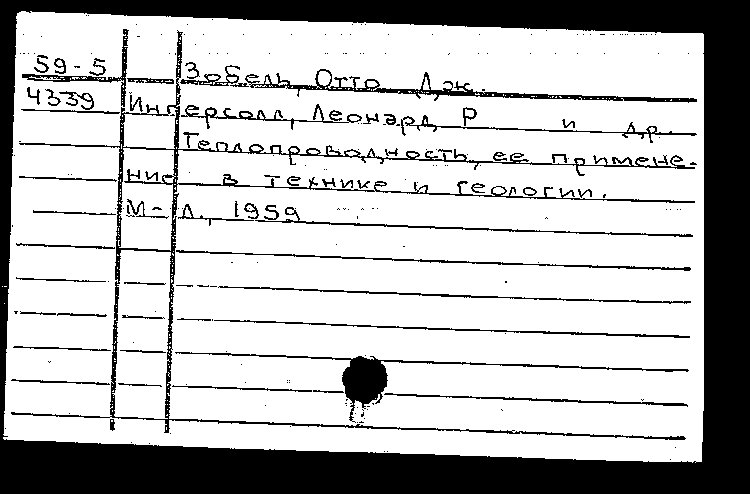 59-5 Зобель, Отто Дж.
4339 Ингерсолл, Леонард Р и др.
Теплопроводность, ее примене-
ние в технике и геологии.
М-Л., 1959